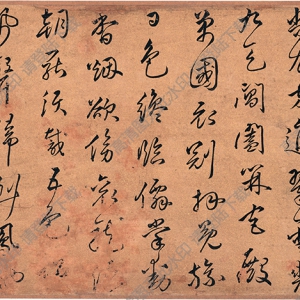 尚衣方進翠雲裘
九天閶闔開宮殿
萬國衣冠拜冕旒
日色纔臨僊掌動
香煙欲傍袞龍浮
朝罷須裁五色詔
珮聲歸到鳳池